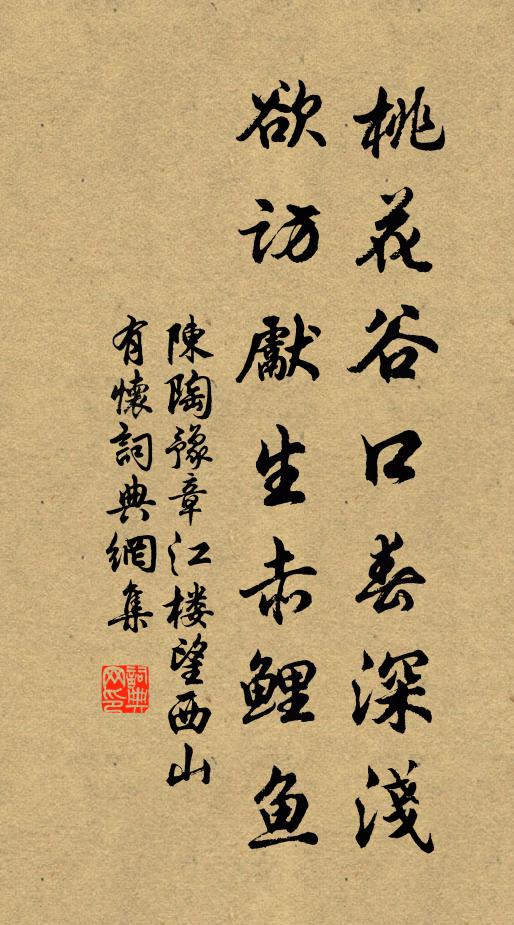 桃花谷口春深淺
欲訪獻生赤鲤鱼
陳陶豫章江楼望西山
有懷詞典網集
詞典
网印